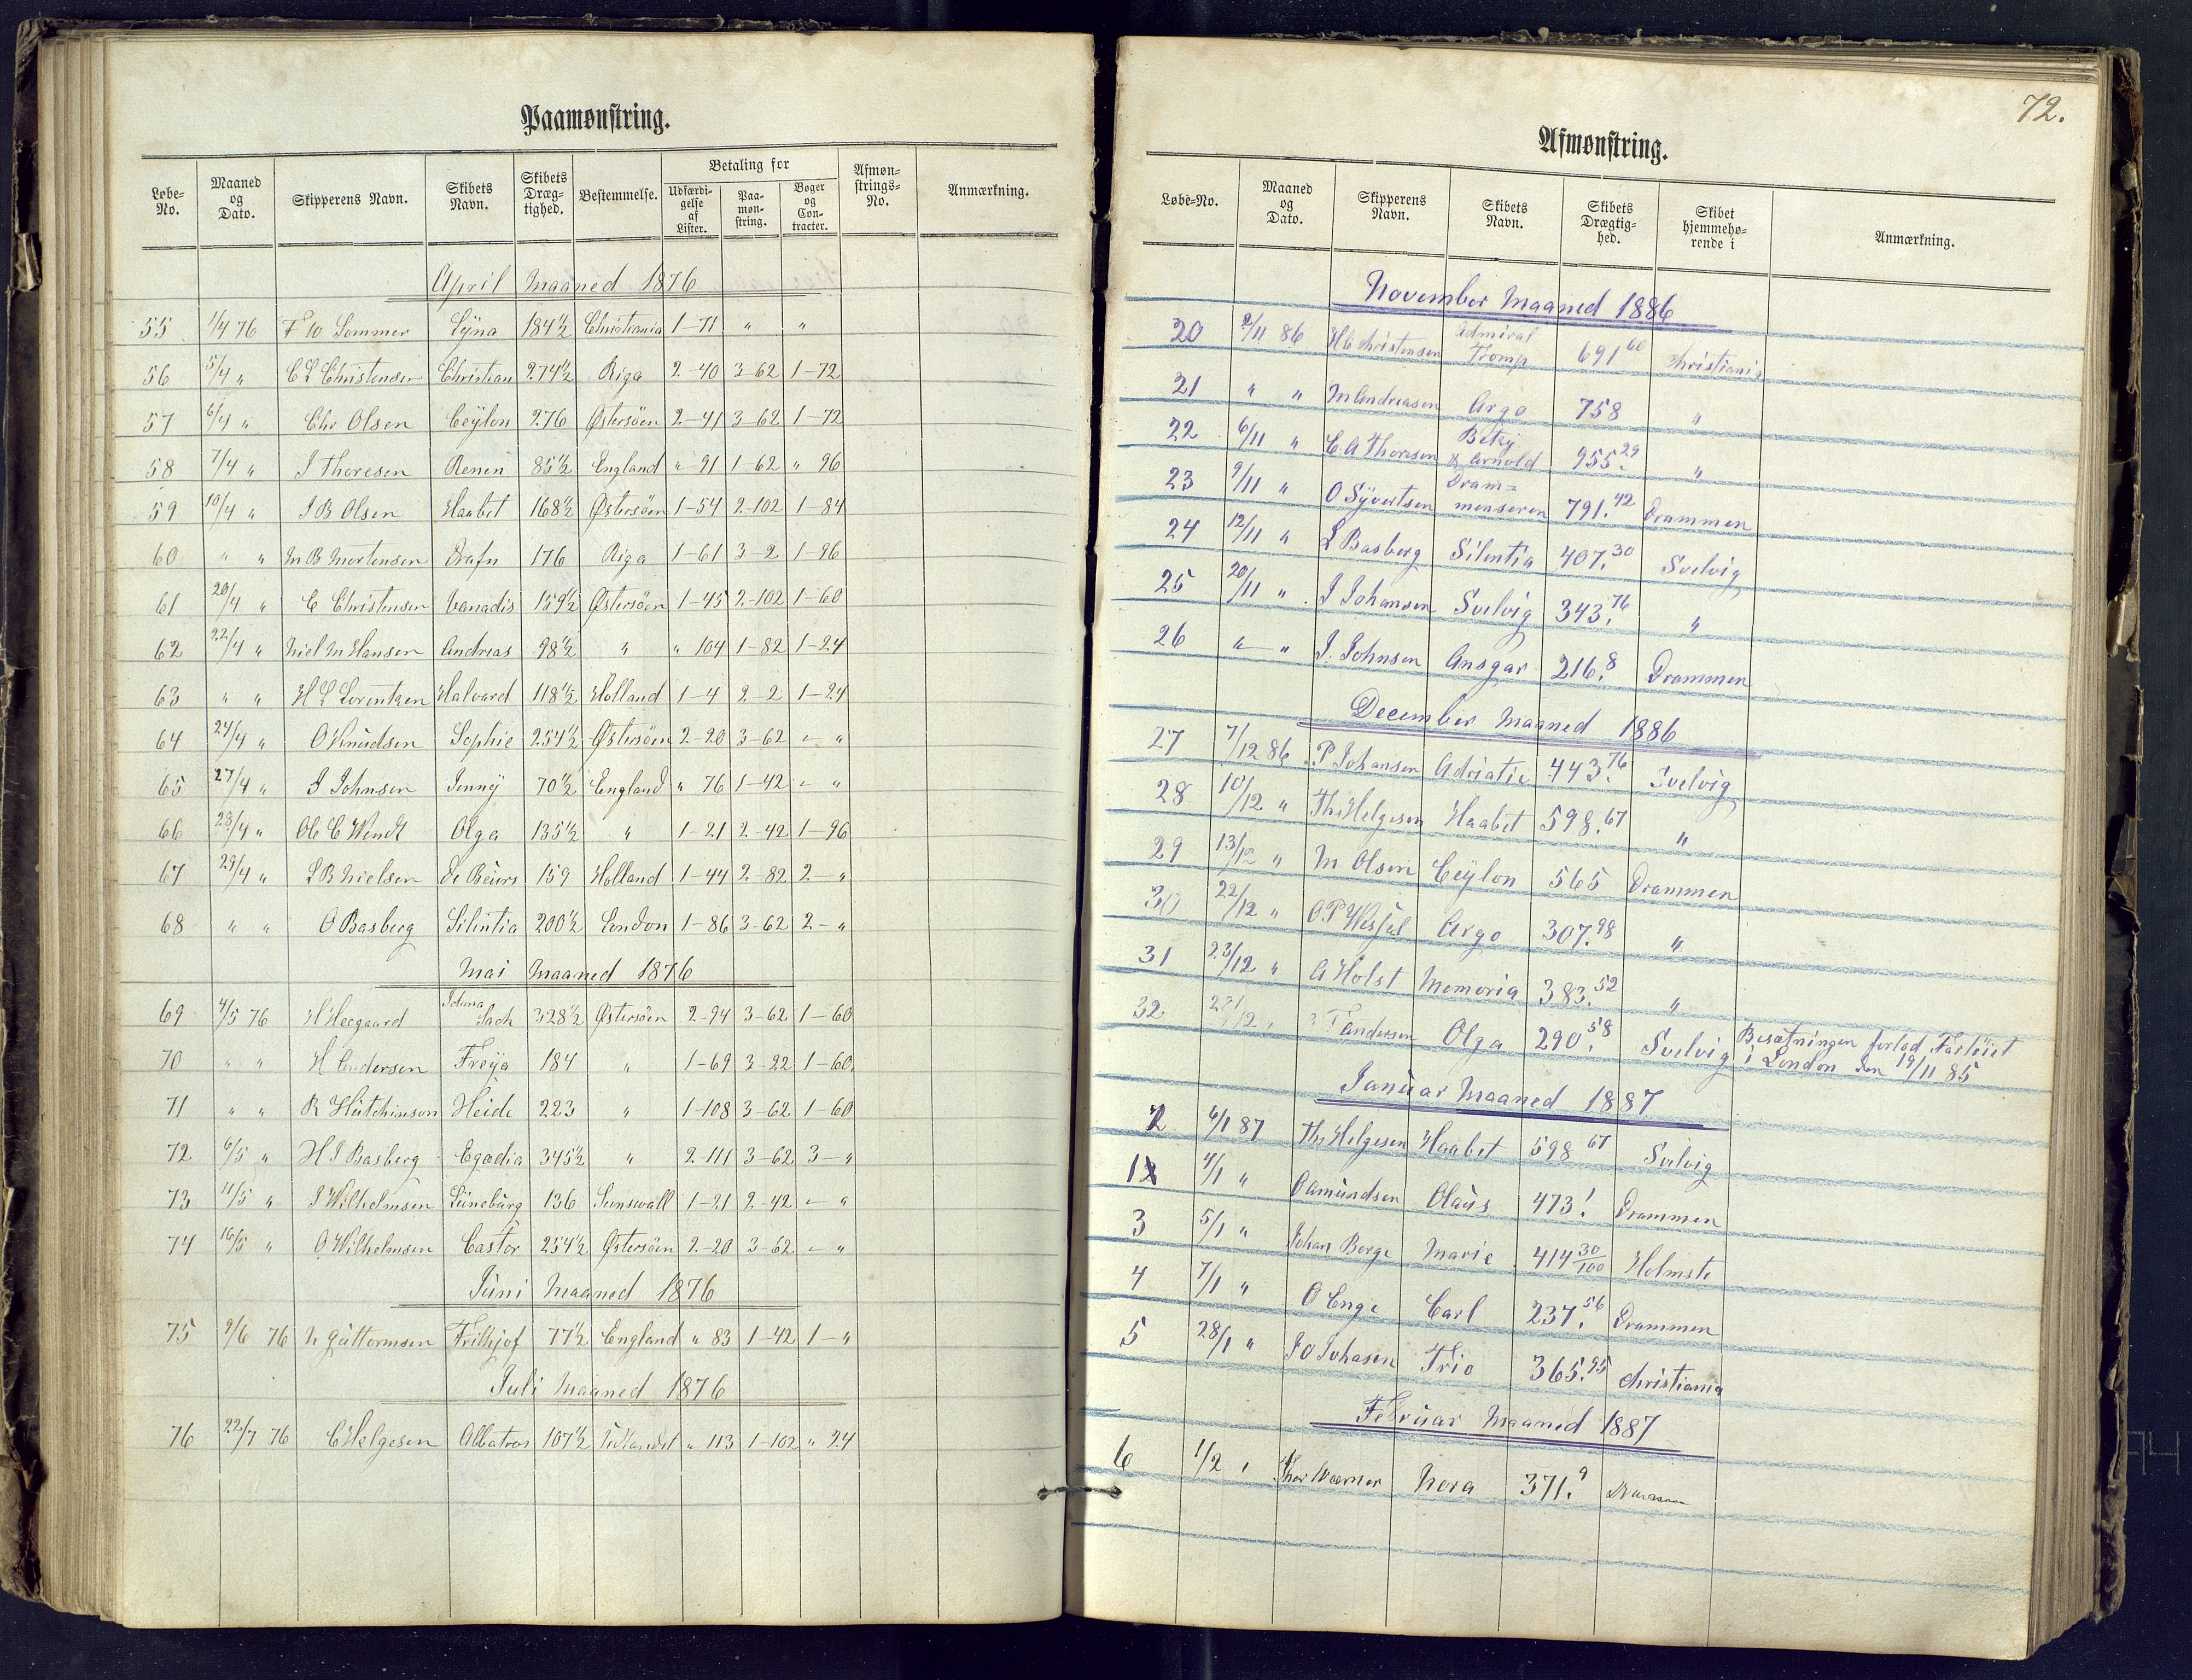 Paamønstring.
Løbe-No. Maaned og Dato. Skipperens Navn. Skibets Navn. Skibets Dræg-tighed. Bestemmelse. Betaling for Udfærdi-gelse af Lister. Paa-møn-string. Bøger og Con-tracter. Afmøn-strings-No. Anmærkning.
April Maaned 1876
55 1/4 76 F W Sommer Lyna 184½ Christiania 1-71 " "
56 5/4 " C L Christensen Christian 274½ Riga 2-40 3-62 1-72
57 6/4 " Chr Olsen Ceylon 276 Østersöen 2-41 3-62 1-72
58 7/4 " J Thoresen Renen 85½ England " 91 1-62 " 96
59 10/4 " J B Olsen Haabet 168½ Østersöen 1-54 2-102 1-84
60 " " M B Mortensen Drafn 176 Riga 1-61 3-2 1-96
61 20/4 " C Christensen Vanadis 159½ Østersöen 1-45 2-102 1-60
62 22/4 " Niel M Hansen Andreas 98½ " " 104 1-82 1-24
63 " " H L Lorentzen Halvard 118½ Holland 1-4 2-2 1-24
64 24/4 " O Knudsen Sophie 254½ Østersöen 2-20 3-62 - "
65 27/4 " J Johnsen Jenny 70½ England " 76 1-42 - "
66 28/4 " Ol C Wendt Olga 135½ " 1-21 2-42 1-96
67 29/4 " L B Nielsen De Beurs 159 Holland 1-44 2-82 2-"
68 " " O Basberg Silentia 200½ London 1-86 3-62 2-"
Mai Maaned 1876
69 4/5 76 H Heegaard Sach 328½ Østersöen 2-94 3-62 1-60
70 " " H Andersen Freya 184 " 1-69 3-22 1-60
71 " " R Hutchinson Heide 223 " 1-108 3-62 1-60
72 6/5 " H J Basberg Egadia 345½ " 2-111 3-62 3-"
73 11/5 " J Wilhelmsen Lüneburg 136 Sunswall 1-21 2-42 - "
74 16/5 " O Wilhelmsen Castor 254½ Østersöen 2-20 3-62 - "
Juni Maaned 1876
75 9/6 76 N Guttormsen Frithjof 77½ England " 83 1-42 1-"
Juli Maaned 1876
76 22/7 76 C Helgesen Albatros 107½ Udlandet " 113 1-102 " 24
72.
Afmønstring.
Løbe-No. Maaned og Dato. Skipperens Navn. Skibets Navn. Skibets Drægtig-hed. Skibet hjemmehø-rende i Anmærkning.
November Maaned 1886
20 2/11 86 H C Christensen Admiral Tromp 691.60 Christiania
21 " " M Andreasen Argo 758 "
22 6/11 " C. A Thoresen Betzy & Arnold 955.29 "
23 9/11 " O Syvertsen Dram=menseren 791.42 Drammen
24 12/11 " L Basberg Silentia 407.30 Svelvig
25 20/11 " J Johansen Svelvig 343.76 "
26 " " J. Johnsen Ansgar 216.8 Drammen
December Maaned 1886
27 7/12 86 P Johansen Adriatic 443.76 Svelvig
28 10/12 " Th. Helgesen Haabet 598.67 "
29 13/12 " M Olsen Ceylon 565 Drammen
30 22/12 " O. P Wessel Argo 307.98 "
31 23/12 " A Holst Memoria 383.52 "
32 Andersen Olga 290.58 Svelvig Besætningen forlod Fartöiet i London den 19/11 85
Januar Maaned 1887
2 6/1 87 Th. Helgesen Haabet 598 67 Svelvig
1 4/1 " O Amundsen Olaus 473.1 Drammen
3 5/1 " Johan Berge Marie 414 30/100 Holmst.
4 7/1 " O Enge Carl 237.56 Drammen
5 28/1 " J O Johasen Trio 365.95 Christiania
Februar Maaned 1887
6 1/2 " Thor Woerner Nora 371.9 Drammen